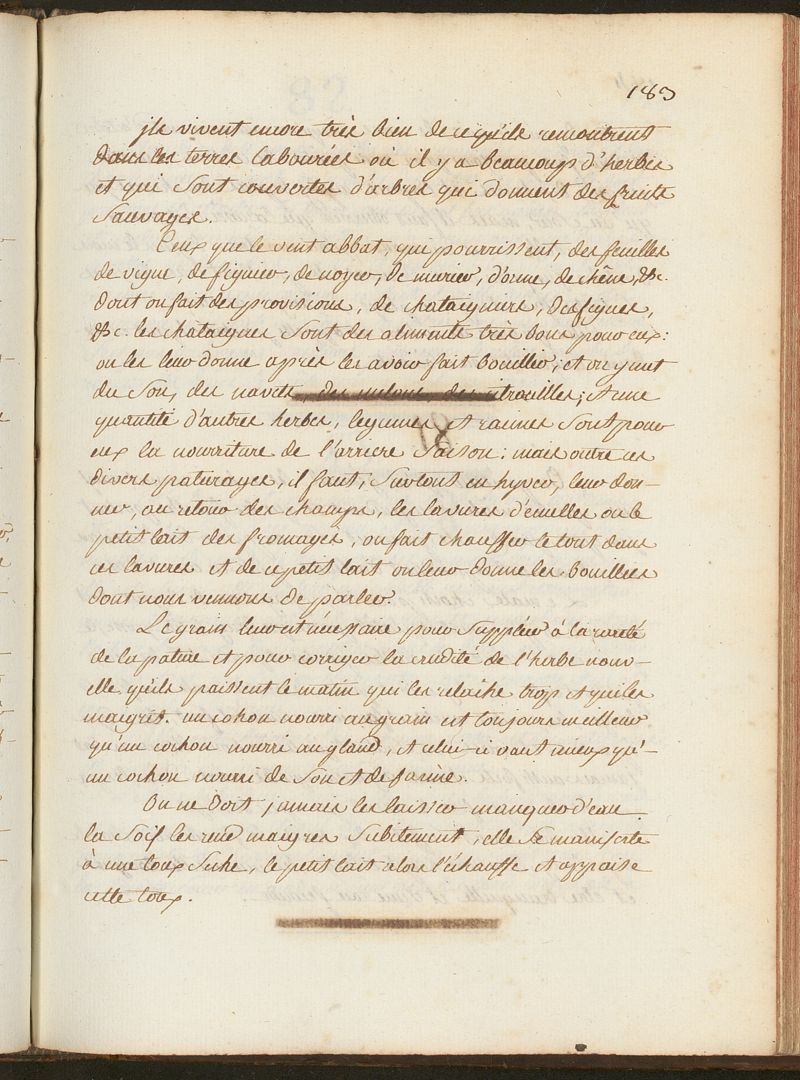 183
jls vivent encore très bien de ce qu'ils rencontrent
dans les terres labourées où il y a beaucoup d'herbes
et qui sont couvertes d'arbres qui donnent des fruits
sauvages.
Ceux que le vent abbat, qui pourrissent, des feuilles
de vigne, de figuier, de noyer, de murier, d'orme, de chêne, &c.
dont on fait des provisions, de chataignes, des figues,
&c. les chataignes sont des aliments très bons pour eux:
on les leur donne après les avoir fait bouillir, et on y met
du son, des navets, des melons, des citrouilles; et une
quantité d'autres herbes, legumes et racines sont pour
eux la nourriture de l'arriere saison: mais outre ces
divers paturages, il faut, surtout en hyver, leur don-
ner, au retour des champs, les lavures d'écuelles ou le
petit lait des fromages, on fait chauffer le tout dans
ces lavures et de ce petit lait on leur donne les bouillies
dont nous vennons de parler.
Le grain leur est nécessaire pour suppléer à la rareté
de la pature et pour corriger la crudité de l'herbe nouv-
elle qu'ils paissent le matin qui les relache trop et qui les
maigrit. un cohon nourri au grain est toujours meilleur
qu'un cochon nourri au gland, et celui-ci vaut mieux qu'-
un cochon nourri de son et de farine.
On ne doit jamais les laisser manquer d'eau
la soif les rend maigres subitement, elle se manifeste
à une toux séche, le petit lait alors l'échauffe et appaise
cette toux.